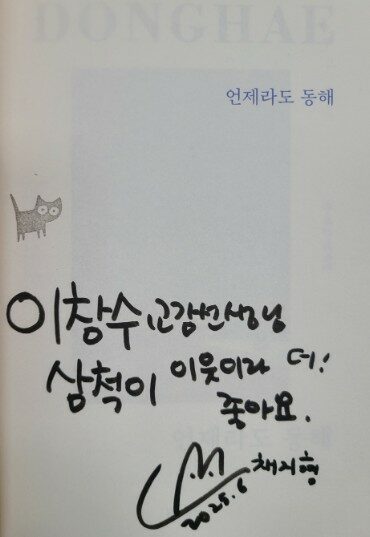 DONGHAE
언제라도 동해
이창수 교감선생님
삼척이 이웃이라 더!
좋아요.
채지형
2025.6
언제라도 동해